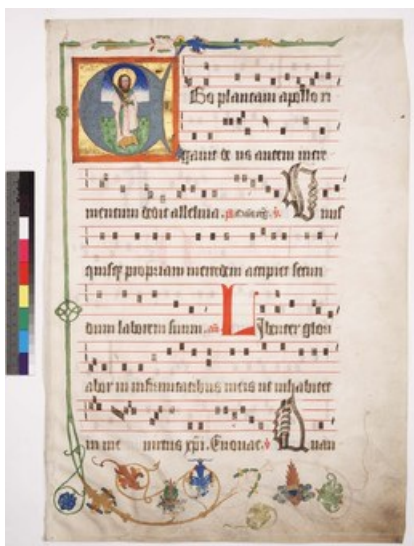 Ego plantaui apollo ri
gauit de us autem incre
mentum dedit alleluia. V nus
quisque propriam mercedem accipiet secun
dum laborem suum. Libenter glori
abor in infirmitatibus meis ut inhabitet
in me uirtus xpi. Euouae.